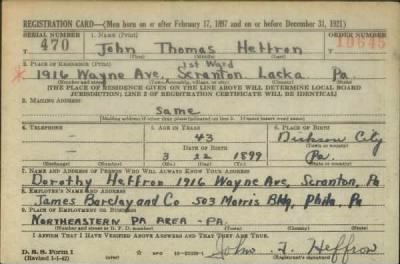 REGISTRATION CARD—(Men born on or after February 17, 1897 and on or before December 31, 1921)
SERIAL NUMBER 1. NAME (Print) ORDER NUMBER
470 John Thomas Heffron 10645
(First) (Middle) (Last)
2. PLACE OF RESIDENCE (Print) 1st Ward
1916 Wayne Ave, Scranton Lacka Pa.
(Number and street) (Town, township, village, or city) (County) (State)
[THE PLACE OF RESIDENCE GIVEN ON THE LINE ABOVE WILL DETERMINE LOCAL BOARD
JURISDICTION; LINE 2 OF REGISTRATION CERTIFICATE WILL BE IDENTICAL]
3. MAILING ADDRESS
Same
[Mailing address if other than place indicated on line 2. If same insert word same]
4. TELEPHONE 5. AGE IN YEARS 6. PLACE OF BIRTH
43 Dickson City
DATE OF BIRTH (Town or county)
3 22 1899 Pa.
(Exchange) (Number) (Mo.) (Day) (Yr.) (State or country)
7. NAME AND ADDRESS OF PERSON WHO WILL ALWAYS KNOW YOUR ADDRESS
Dorothy Heffron 1916 Wayne Ave, Scranton, Pa
8. EMPLOYER'S NAME AND ADDRESS
James Barclay and Co 503 Morris Bldg, Phila. Pa
9. PLACE OF EMPLOYMENT OR BUSINESS
NORTHEASTERN PA AREA - PA.
(Number and street or R. F. D. number) (Town) (County) (State)
I AFFIRM THAT I HAVE VERIFIED ABOVE ANSWERS AND THAT THEY ARE TRUE.
D. S. S. Form 1
(Revised 1-1-42) (over) John T. Heffron